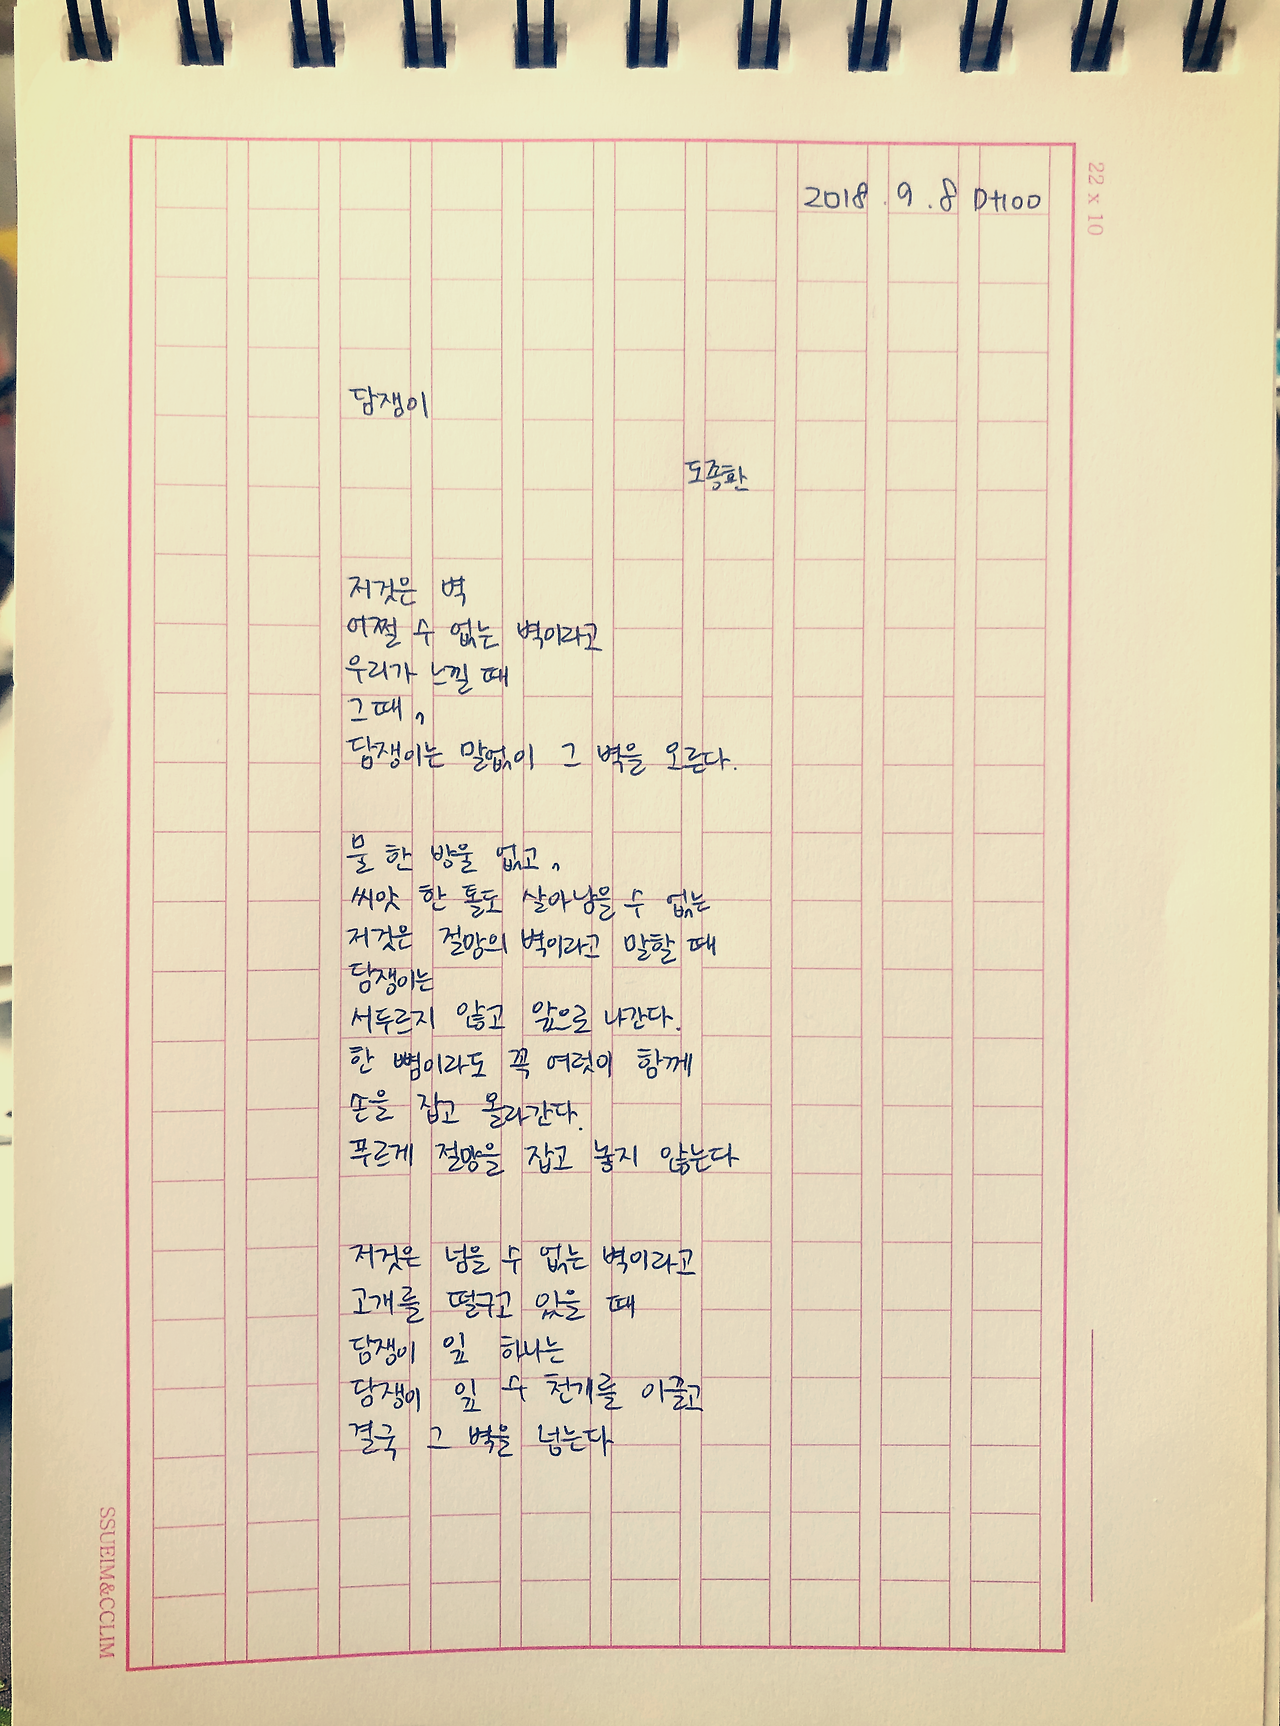 2018. 9. 8 D+100
22 x 10
담쟁이
도종환
저것은 벽
어쩔 수 없는 벽이라고
우리가 느낄 때
그때,
담쟁이는 말없이 그 벽을 오른다.
물 한 방울 없고,
씨앗 한 톨도 살아남을 수 없는
저것은 절망의 벽이라고 말할 때
담쟁이는
서두르지 않고 앞으로 나간다.
한 뼘이라도 꼭 여럿이 함께
손을 잡고 올라간다.
푸르게 절망을 잡고 놓지 않는다
저것은 넘을 수 없는 벽이라고
고개를 떨구고 있을 때
담쟁이 잎 하나는
담쟁이 잎 수 천개를 이끌고
결국 그 벽을 넘는다
SSUEIM&CCLIM